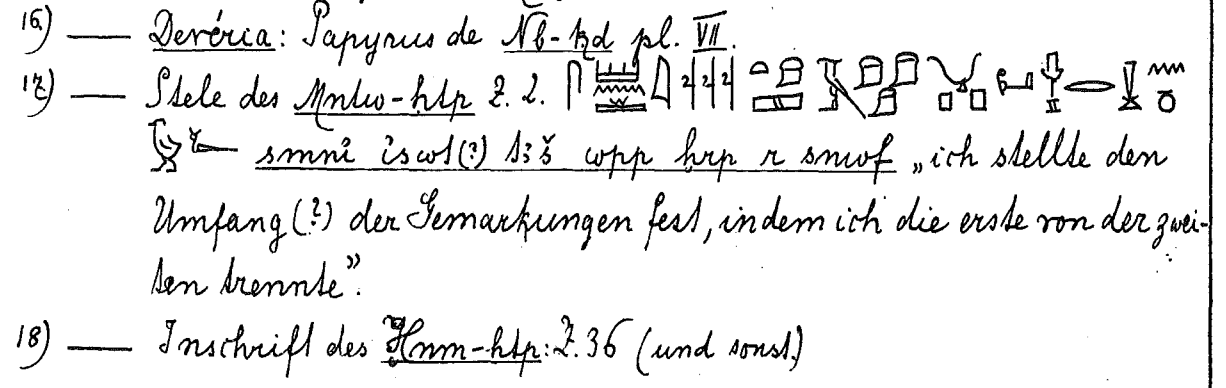 16) — Devéria: Papyrus de Nb-ḳd pl. VII.
17) — Stele des Mntw-ḥtp Z. 2.
smnỉ ỉswt(?) tꜣš wpp hrp r snwf „ich stellte den
Umfang (?) der Gemarkungen fest, indem ich die erste von der zwei-
ten trennte”.
18) — Inschrift des Ḫnm-ḥtp: Z. 36 (und sonst)